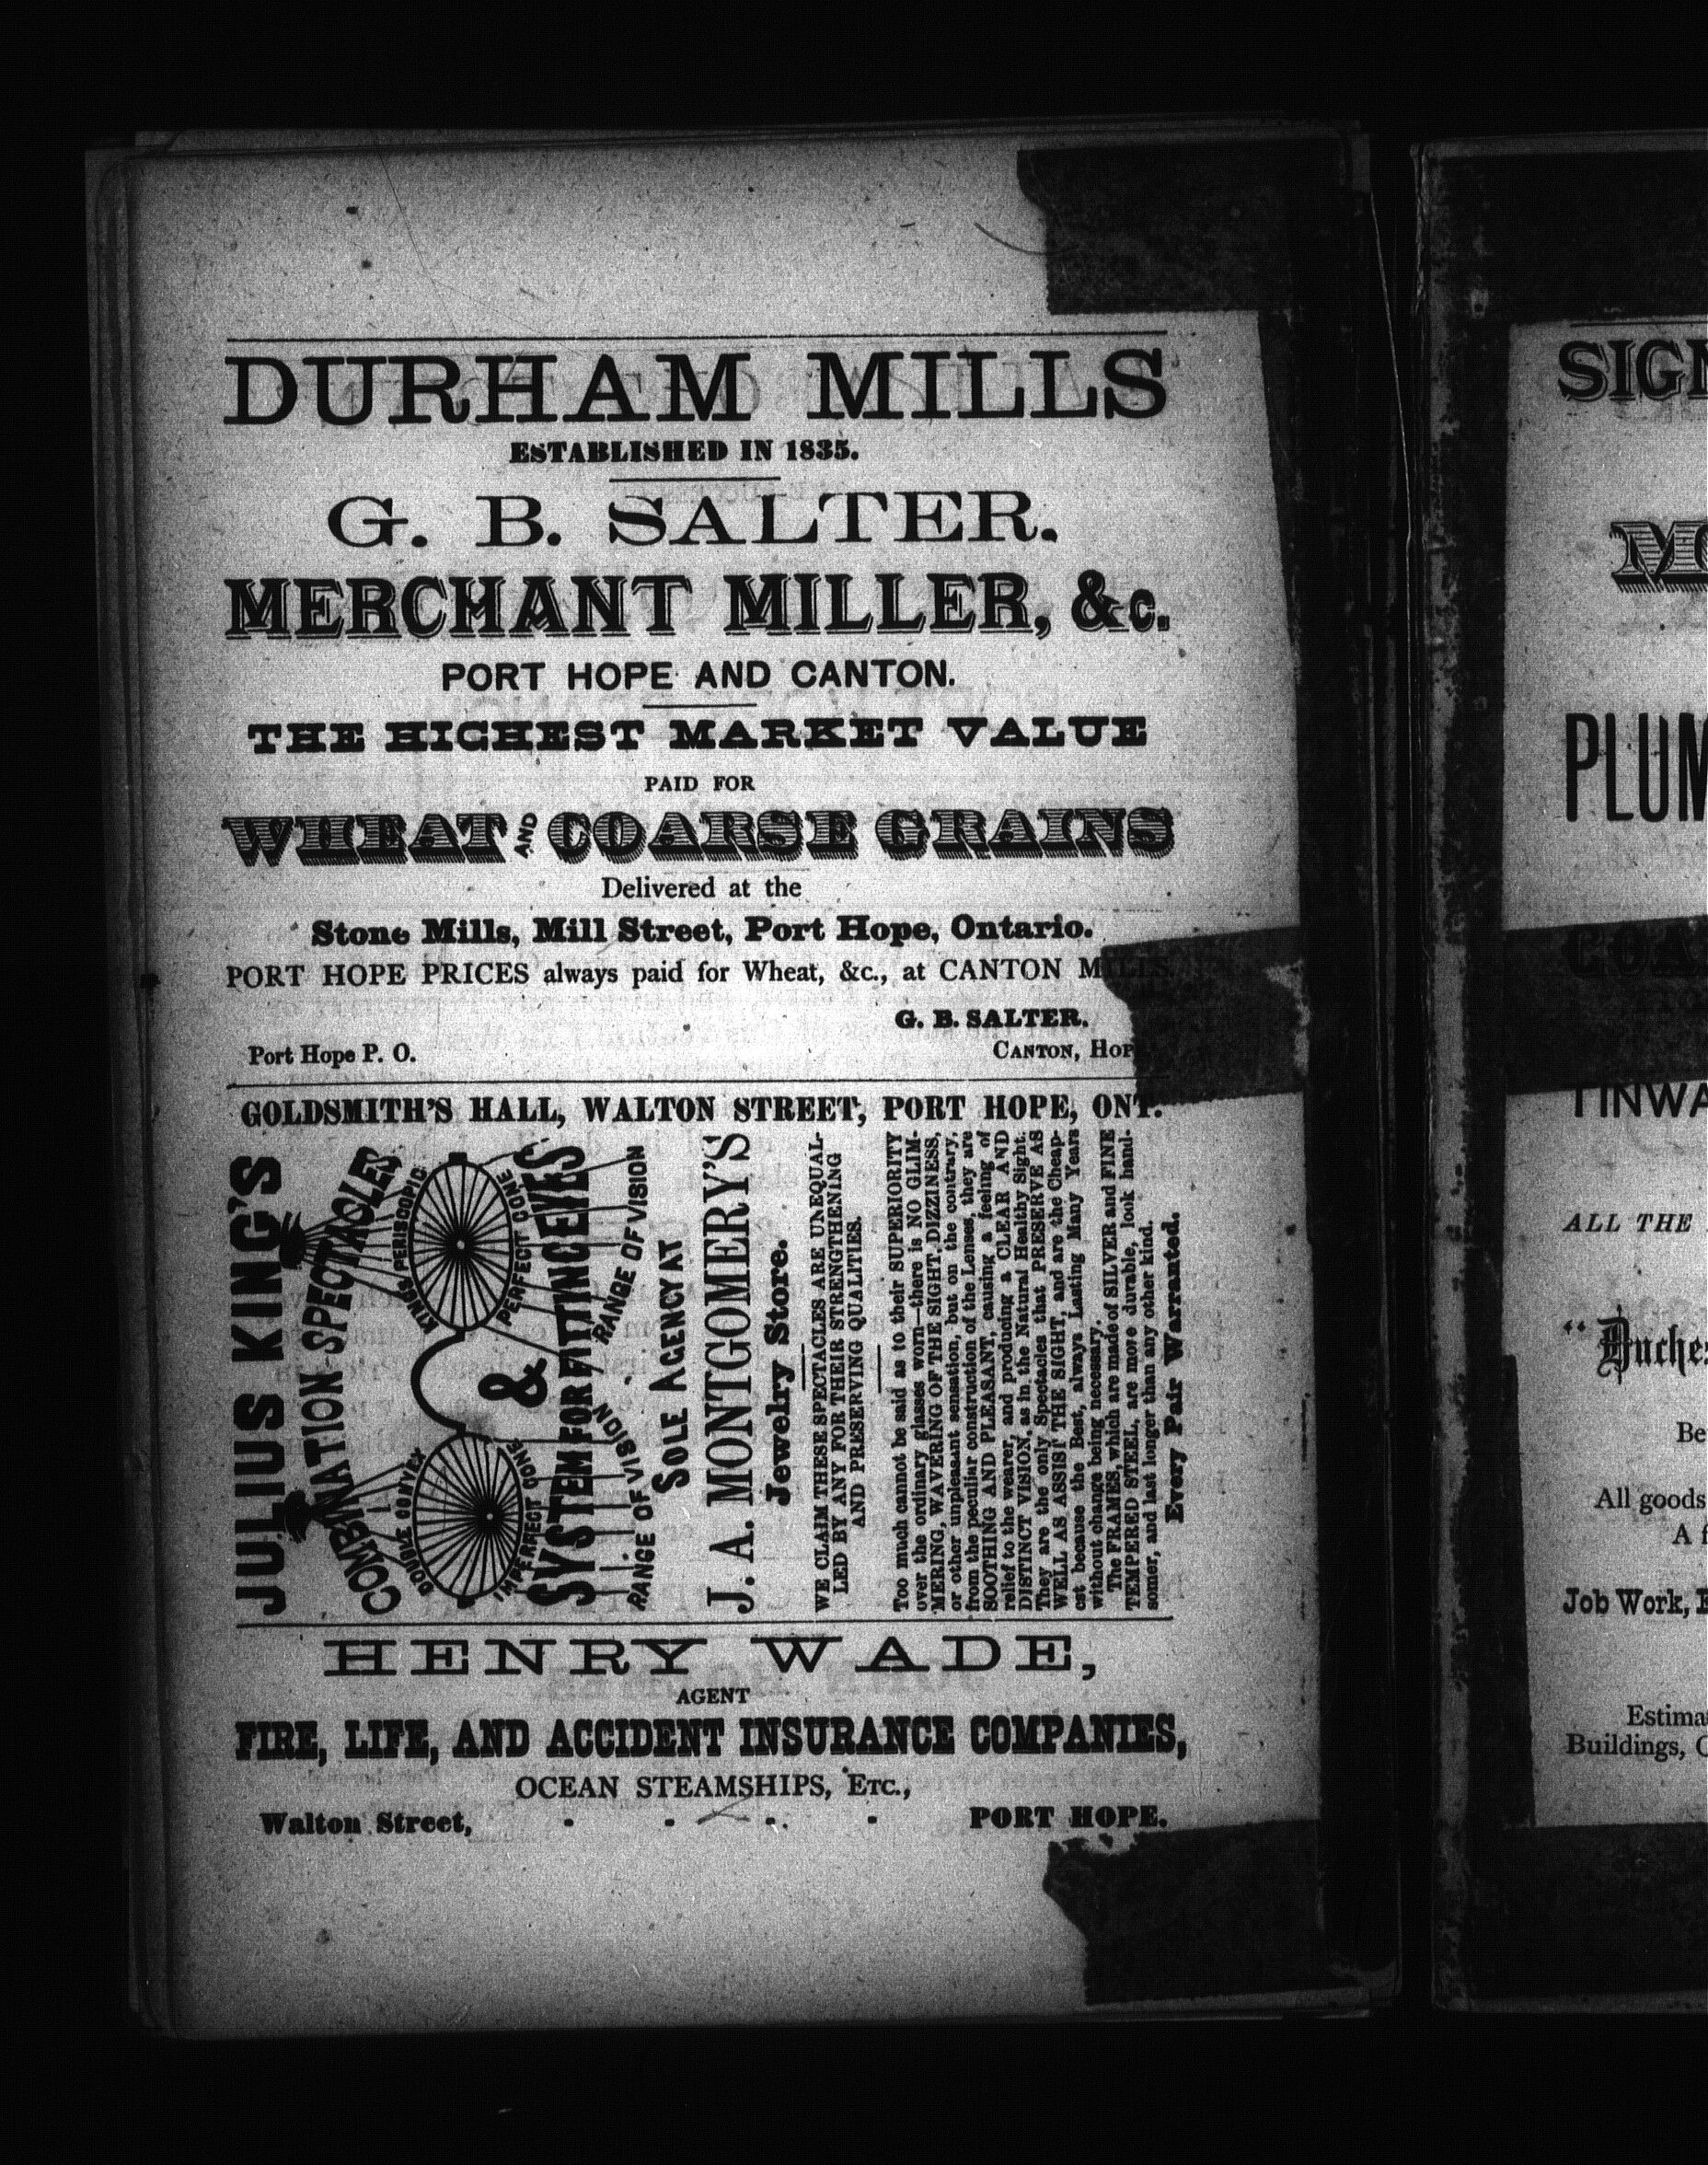 DURHAM MILLS
ESTABLISHED IN 1835.
G. B. SALTER.
MERCHANT MILLER, &c.
PORT HOPE AND CANTON.
THE HIGHEST MARKET VALUE
PAID FOR
WHEAT AND COARSE GRAINS
Delivered at the
Stone Mills, Mill Street, Port Hope, Ontario.
PORT HOPE PRICES always paid for Wheat, &c., at CANTON MILLS.
G. B. SALTER.
Port Hope P. O. CANTON, HOPE.
GOLDSMITH'S HALL, WALTON STREET, PORT HOPE, ONT.
JULIUS KING'S
COMBINATION SPECTACLES
DOUBLE CONVEX KING'S PERISCOPIC
IMPERFECT CONE PERFECT CONE
&
SYSTEM FOR FITTING EYES
RANGE OF VISION RANGE OF VISION
SOLE AGENCY AT
J. A. MONTGOMERY'S
Jewelry Store.
WE CLAIM THESE SPECTACLES ARE UNEQUAL-
LED BY ANY FOR THEIR STRENGTHENING
AND PRESERVING QUALITIES.
Too much cannot be said as to their SUPERIORITY
over the ordinary glasses worn—there is NO GLIM-
MERING, WAVERING OF THE SIGHT, DIZZINESS,
or other unpleasant sensation, but on the contrary,
from the peculiar construction of the Lenses, they are
SOOTHING AND PLEASANT, causing a feeling of
relief to the wearer, and producing a CLEAR AND
DISTINCT VISION, as in the Natural Healthy Sight.
They are the only Spectacles that PRESERVE AS
WELL AS ASSIST THE SIGHT, and are the Cheap-
est because the Best, always Lasting Many Years
without change being necessary.
The FRAMES, which are made of SILVER and FINE
TEMPERED STEEL, are more durable, look hand-
somer, and last longer than any other kind.
Every Pair Warranted.
HENRY WADE,
AGENT
FIRE, LIFE, AND ACCIDENT INSURANCE COMPANIES,
OCEAN STEAMSHIPS, ETC.,
Walton Street, - - - - PORT HOPE.
SIGN
MO
PLUM
COA
TINWA
ALL THE
"Duches
Be
All goods
A f
Job Work, E
Estima
Buildings, C